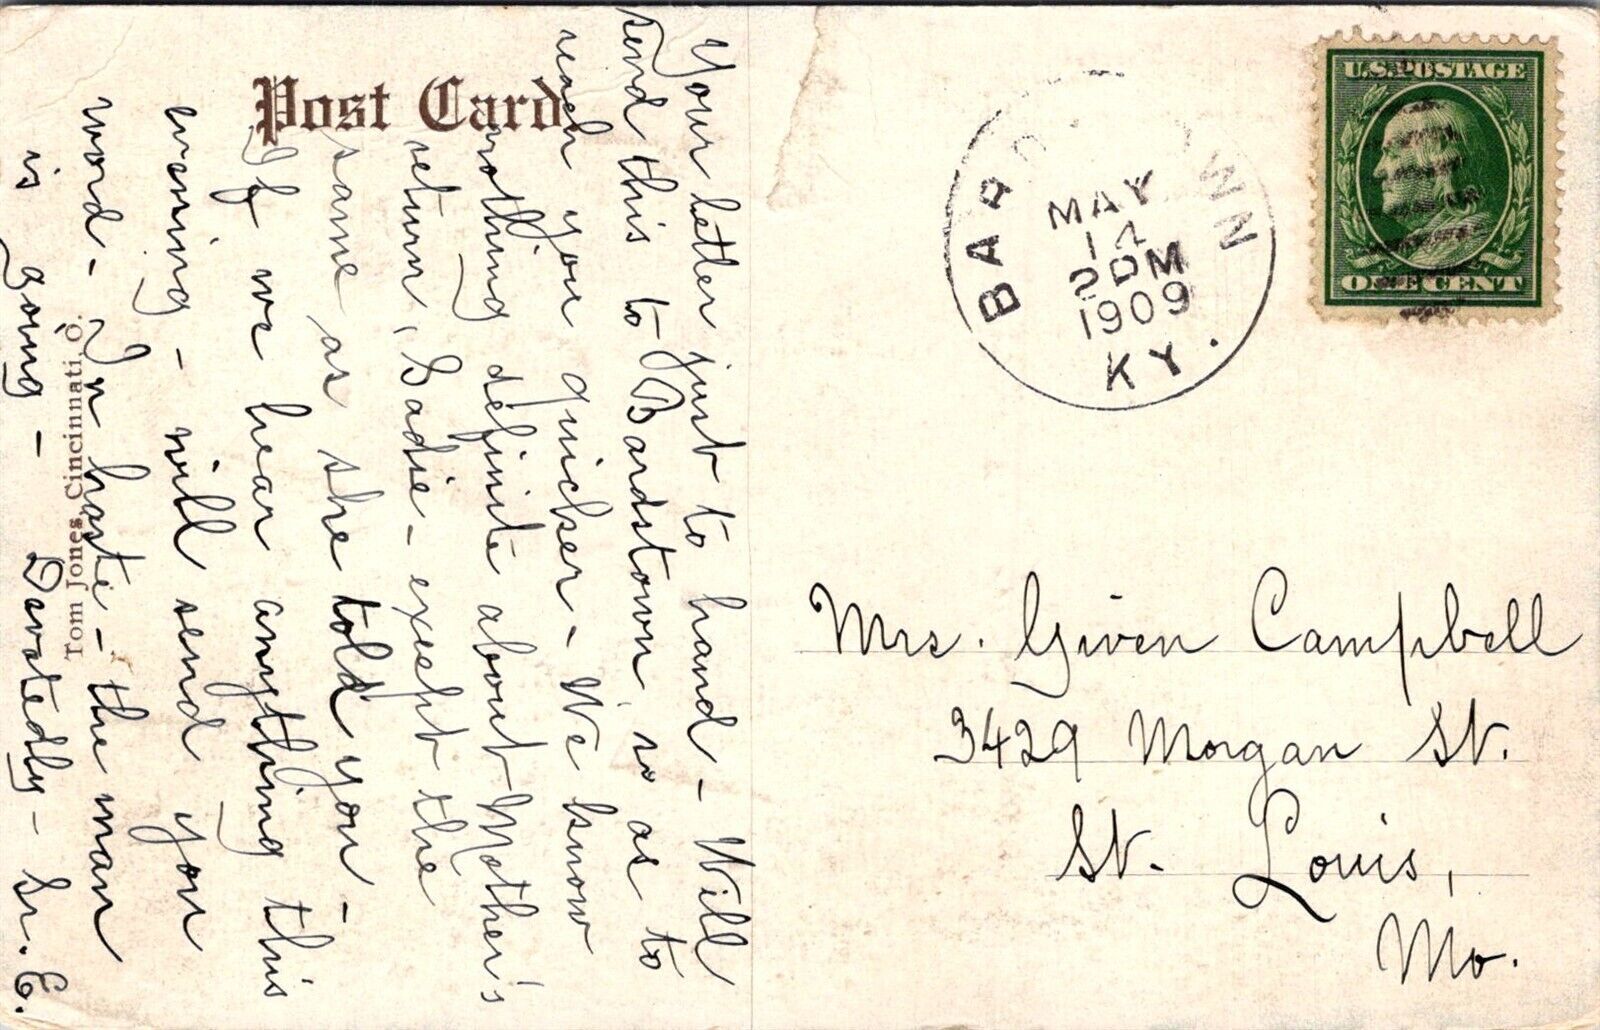 Post Card.
Your letter just to hand - Will
send this to Bardstown, so as to
reach you quicker - We know
nothing definite about Mother's
return, Sadie - except the
same as she told you -
If we hear anything this
evening - will send you
word - In haste - the man
is going - Devotedly - Sr. E.
Tom Jones, Cincinnati, O.
BARD WN
MAY
14
2 PM
1909
KY.
U.S. POSTAGE
ONE CENT
Mrs. Given Campbell
3429 Morgan St.
St. Louis,
Mo.